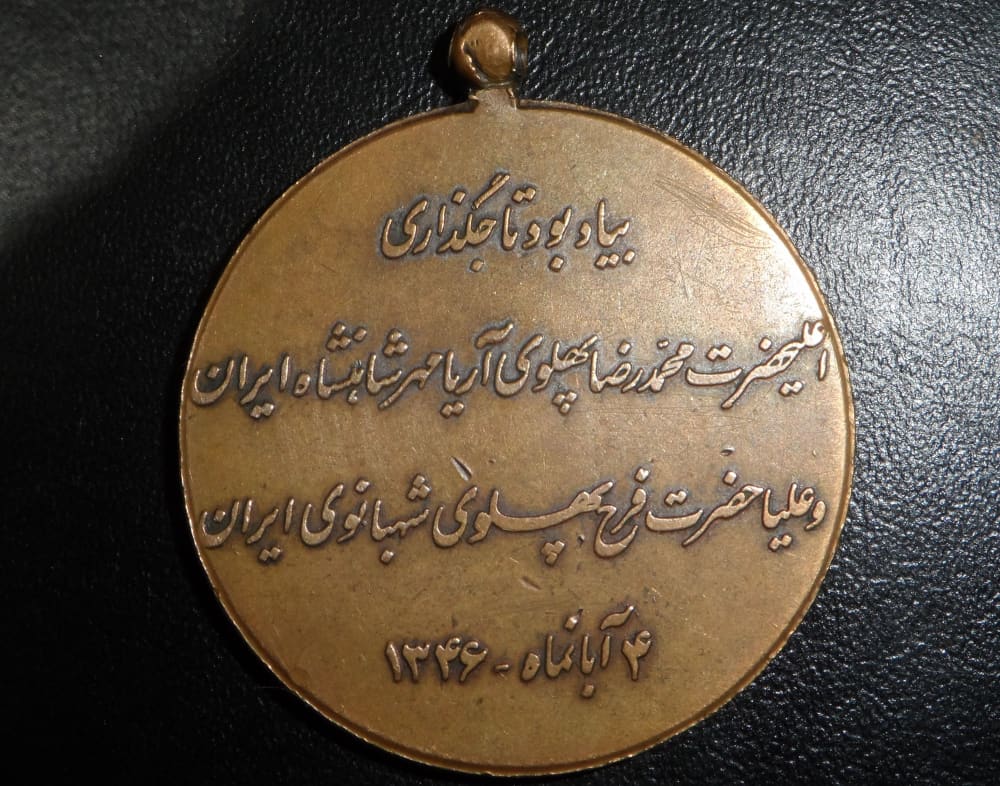 بیاد بود تاجگذاری
اعلیحضرت محمد رضا پهلوی آریامهر شاهنشاه ایران
و علیا حضرت فرح پهلوی شهبانوی ایران
۴ آبانماه - ۱۳۴۶